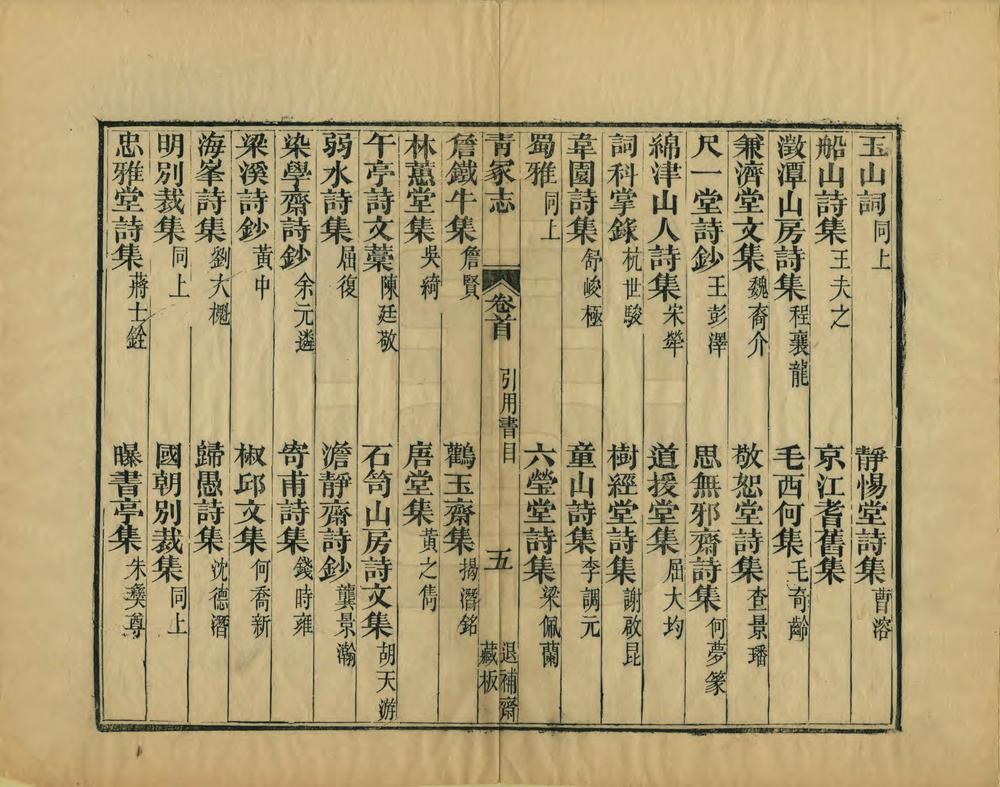 玉山詞同上　靜惕堂詩集曹溶
船山詩集王夫之　京江耆舊集
澂潭山房詩集程襄龍　毛西何集毛奇齡
兼濟堂文集魏裔介　敬恕堂詩集查景璠
尺一堂詩鈔王彭澤　思無邪齋詩集何夢篆
綿津山人詩集宋犖　道援堂集屈大均
詞科掌錄杭世駿　樹經堂詩集謝啟昆
韋園詩集舒峻極　童山詩集李調元
蜀雅同上　六瑩堂詩集梁佩蘭
青冢志　卷首　引用書目　五　退補齋藏板
詹鐵牛集詹賢　鸛玉齋集揭潛銘
林蕙堂集吳綺　唐堂集黃之雋
午亭詩文藁陳廷敬　石笥山房詩文集胡天游
弱水詩集屈復　澹靜齋詩鈔龔景瀚
染學齋詩鈔余元遴　寄甫詩集錢時雍
梁溪詩鈔黃中　椒邱文集何喬新
海峯詩集劉大櫆　歸愚詩集沈德潛
明別裁集同上　國朝別裁集同上
忠雅堂詩集蔣士銓　曝書亭集朱彝尊